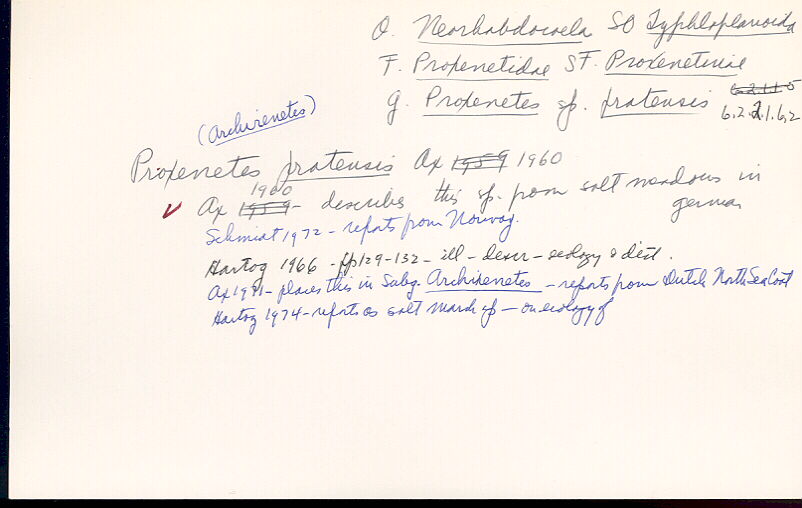 O. Neorhabdocoela SO Typhloplanoida
F. Proxenetidae SF. Proxenetinae
g. Proxenetes sp. pratensis 6.2.1.1.5
6.2.2.1.6.2
(Archixenetes)
Proxenetes pratensis Ax 1959 1960
1960
✓ Ax 1959 - describes this sp. from salt meadows in
German
Schmidt 1972 - reports from Norway.
Hartog 1966 - pp 129-132 - ill - descr - ecology & dist.
Ax 1971 - places this in Subg. Archixenetes - reports from Dutch North Sea Coast
Hartog 1974 - reports as salt marsh sp - on ecology of